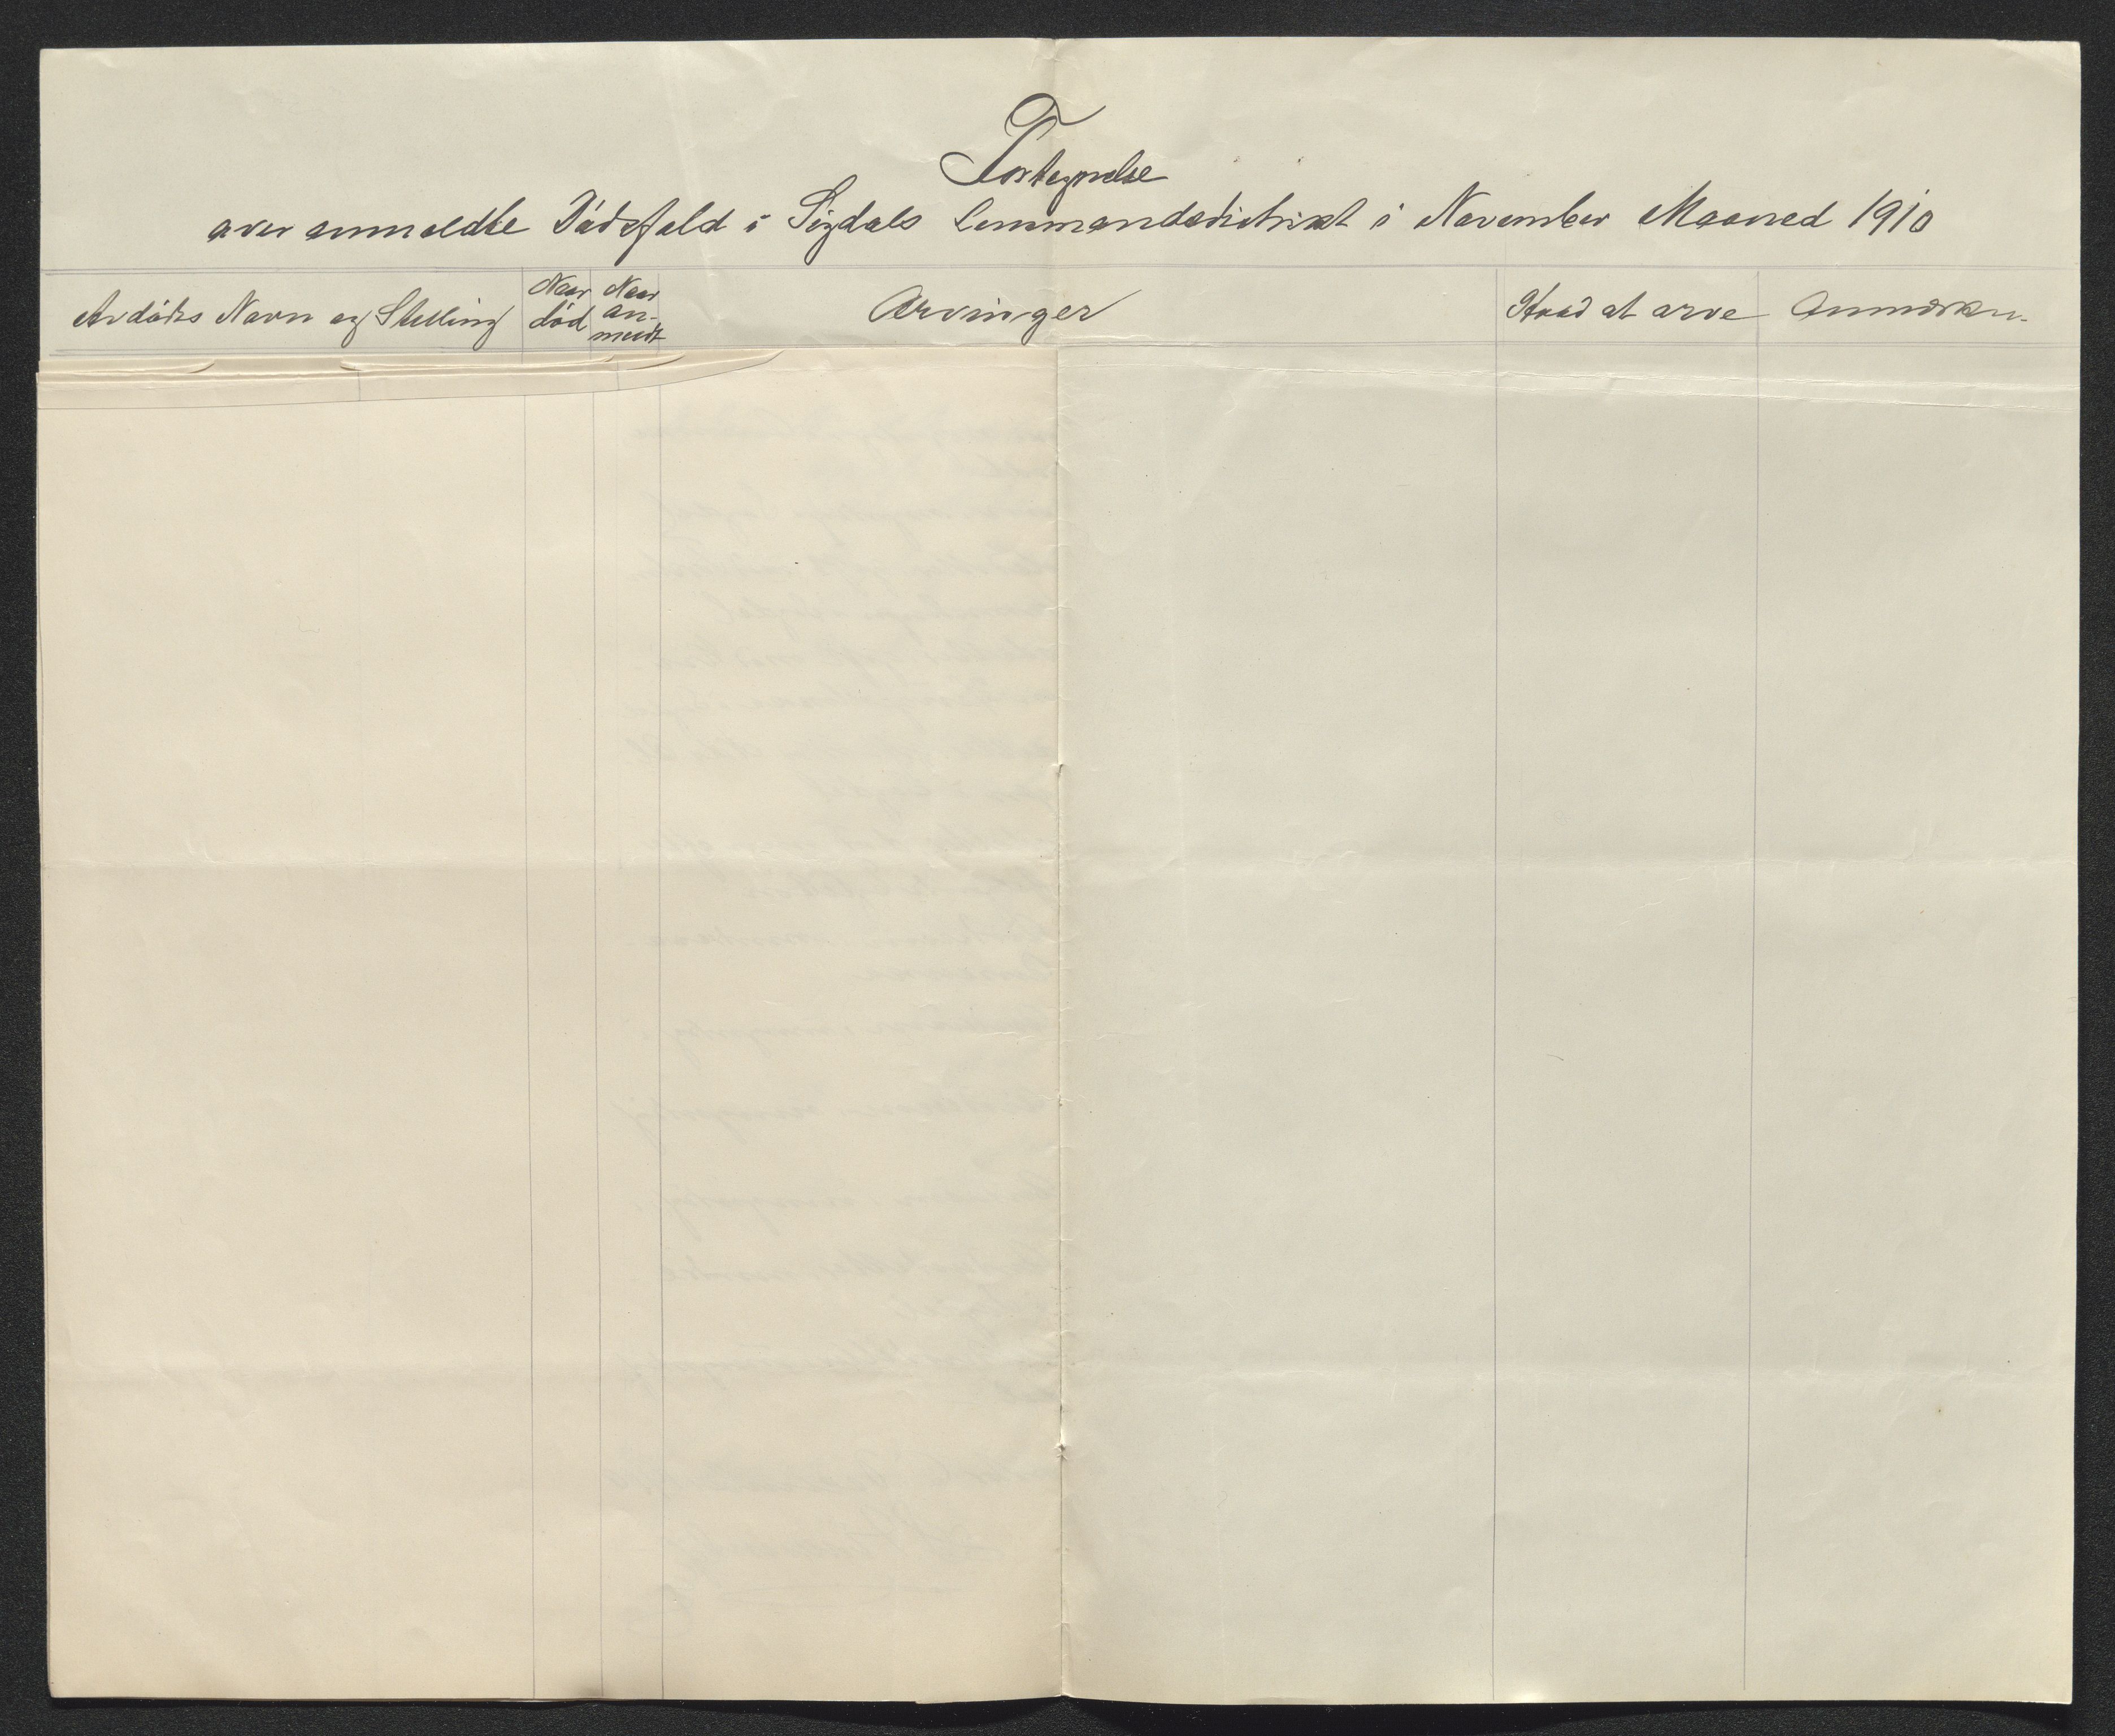 Fortegnelse
over anmeldte Dödsfald i Sigdals Lensmandsdistrikt i November Maaned 1910
Avdödes Navn og Stilling
Naar död
Naar an-
meldt
Arvinger
Hvad at arve
Anmærkn.